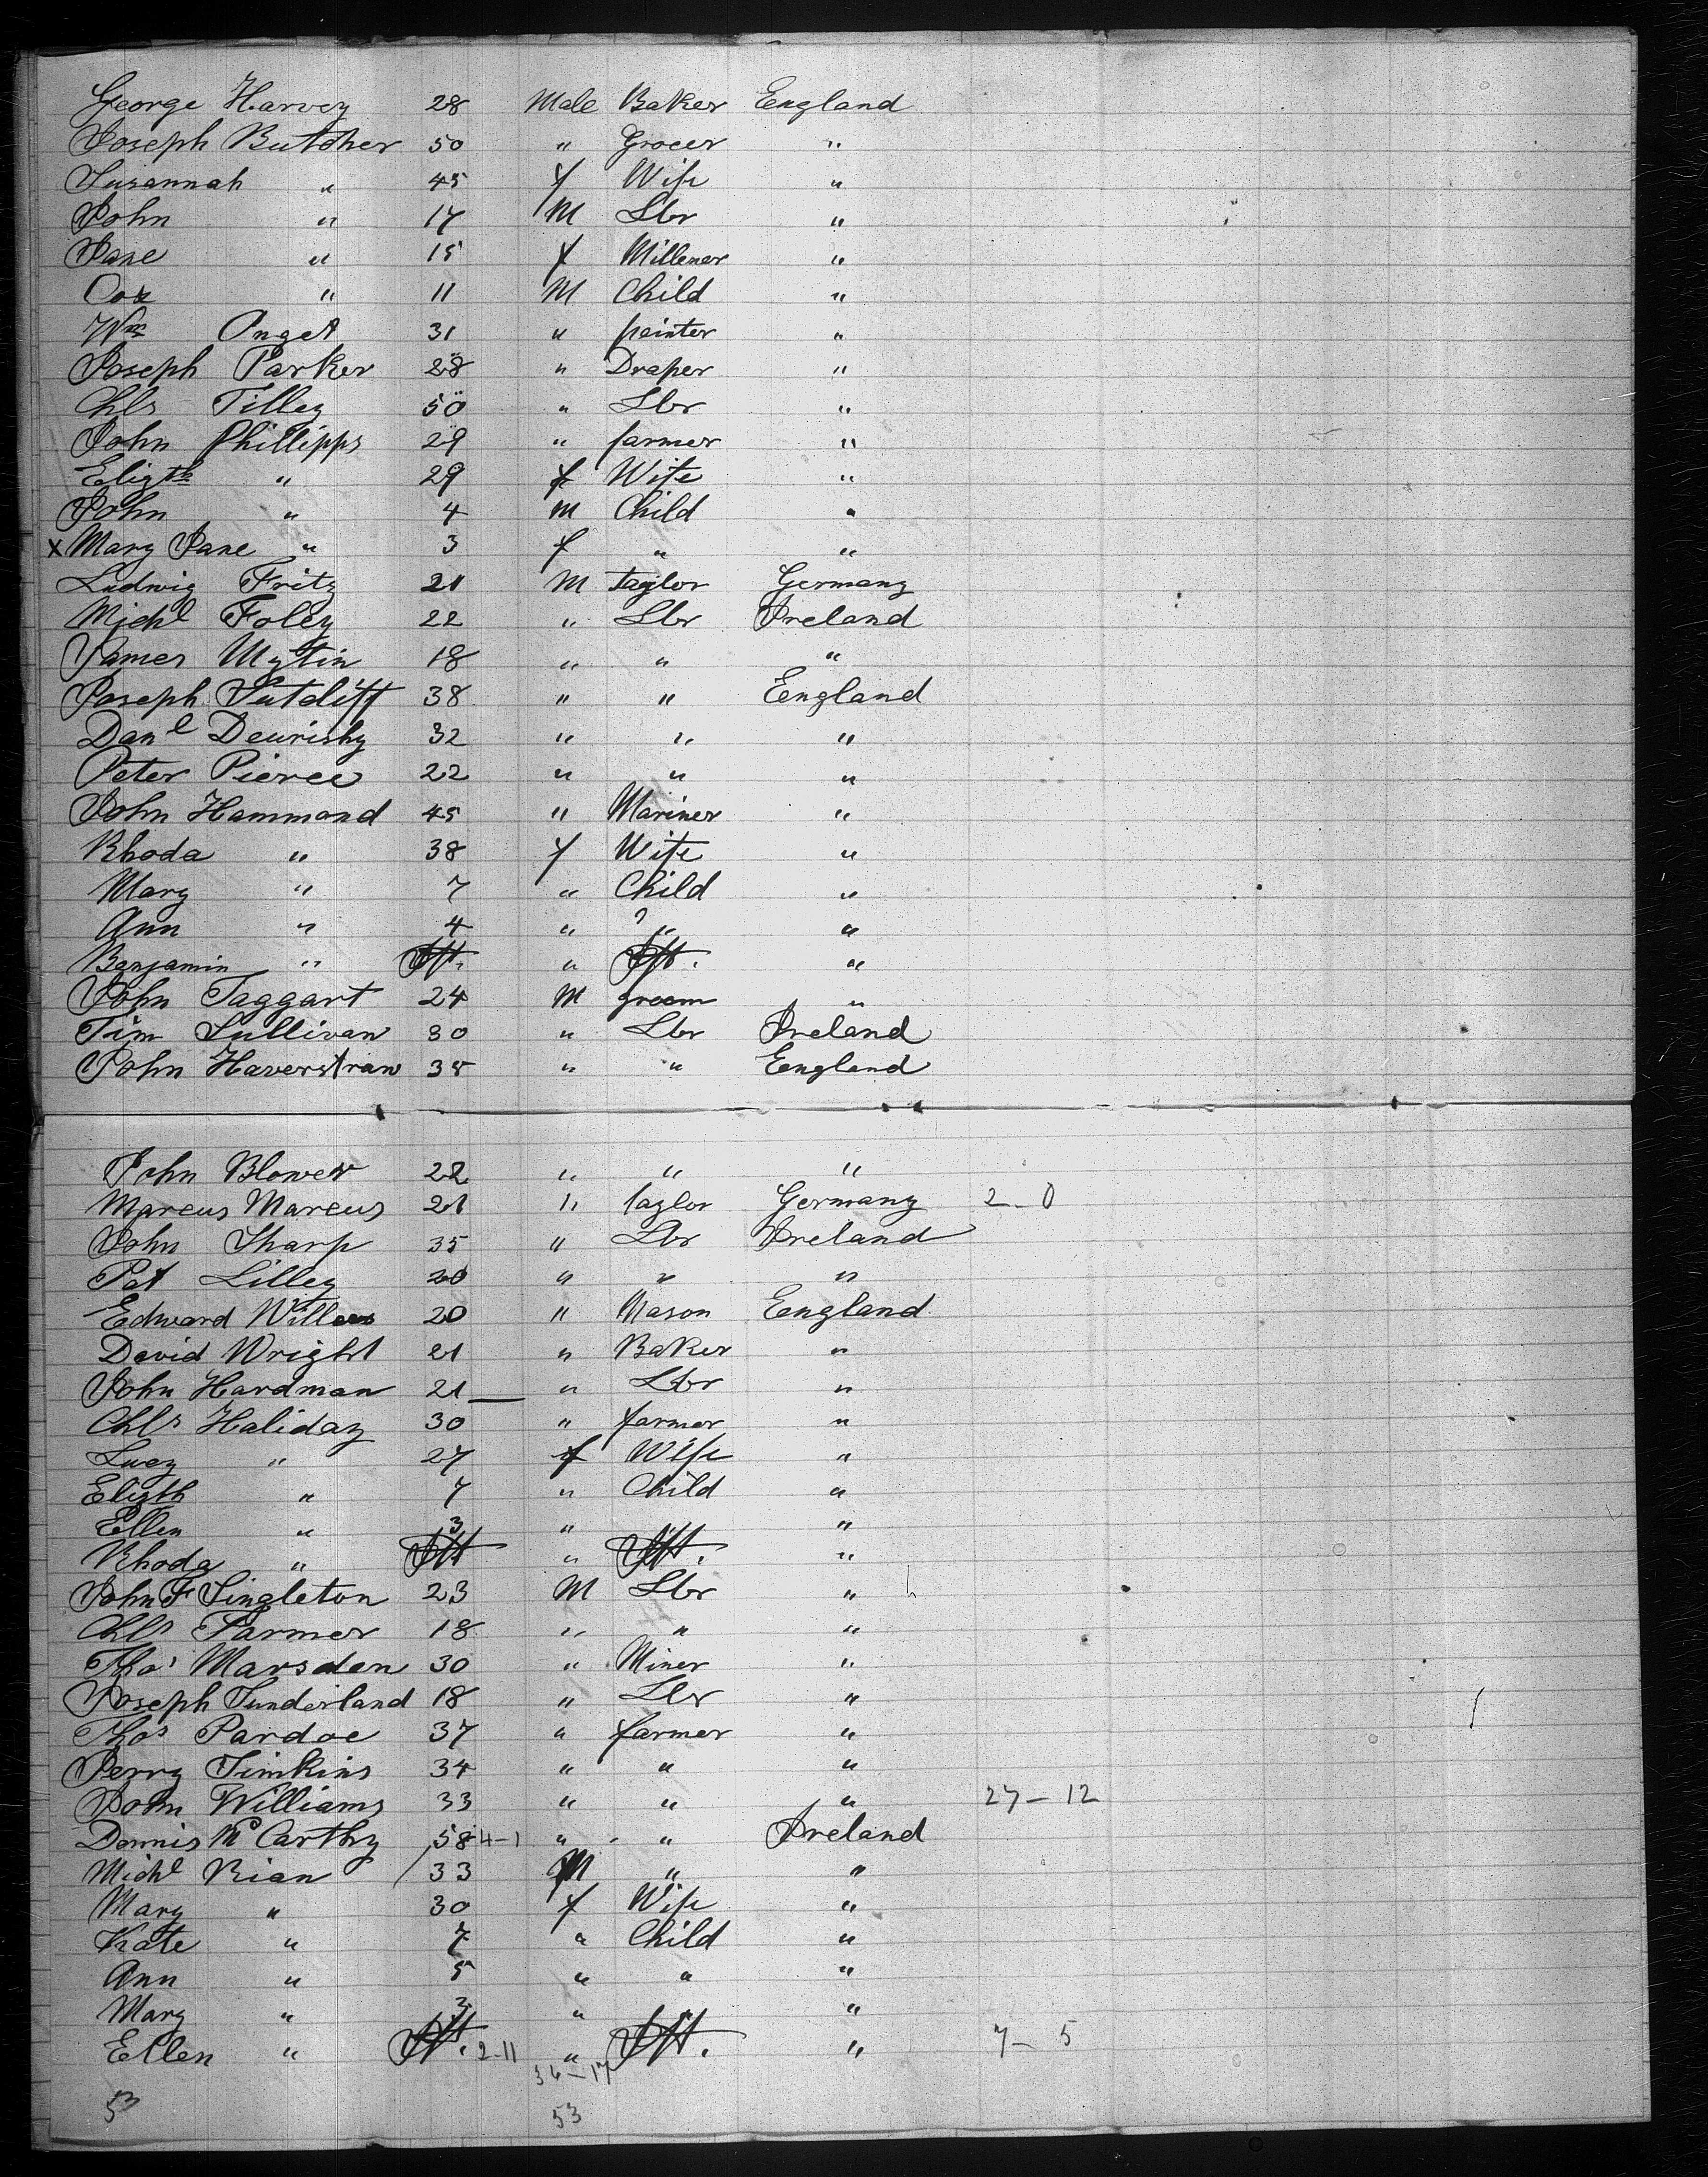 George Harvey 28 Male Baker England
Joseph Butcher 50 " Grocer "
Susannah " 45 f Wife "
John " 17 M Lbr "
Jane " 15 f Millener "
" 11 M Child "
Wm 31 " painter "
Joseph Parker 28 " Draper "
Chls Tilley 50 " Lbr "
John Phillipps 29 " farmer "
Elizth " 29 f Wife "
John " 4 M Child "
x Mary Jane " 3 f " "
Ludwig Fritz 21 M taylor Germany
Michl Foley 22 " Lbr Ireland
James 18 " " "
Joseph Sutcliff 38 " " England
Danl 32 " " "
Peter Pierce 22 " " "
John Hammond 45 " Mariner "
Rhoda " 38 f Wife "
Mary " 7 " Child "
Ann " 4 " " "
Benjamin " Ift. " Ift. "
John Taggart 24 M groom "
Tim Sullivan 30 " Lbr Ireland
John Haverstraw 35 " " England
John Blower 22 " " "
Marcus Marcus 21 " taylor Germany 2-0
John Sharp 35 " Lbr Ireland
Pat Lilley 20 " " "
Edward 20 " Mason England
David Wright 21 " Baker "
John Hardman 21 " Lbr "
Chls Haliday 30 " farmer "
Lucy " 27 f Wife "
Elizth " 7 " Child "
Ellen " 3 " "
Rhoda " Ift " Ift. "
John F Singleton 23 M Lbr "
Chls Farmer 18 " " "
Thos Marsden 30 " Miner "
Joseph Sunderland 18 " Lbr "
Thos Pardoe 37 " farmer "
Perry Timkins 34 " " "
John Williams 33 " " " 27-12
Dennis McCarthy 58 4-1 " " Ireland
Michl Rian 33 M " "
Mary " 30 f Wife "
Kate " 7 " Child "
Ann " 5 " " "
Mary " 3 " " "
Ellen " Ift. 2-11 " Ift. " 7-5
36-17
53 53